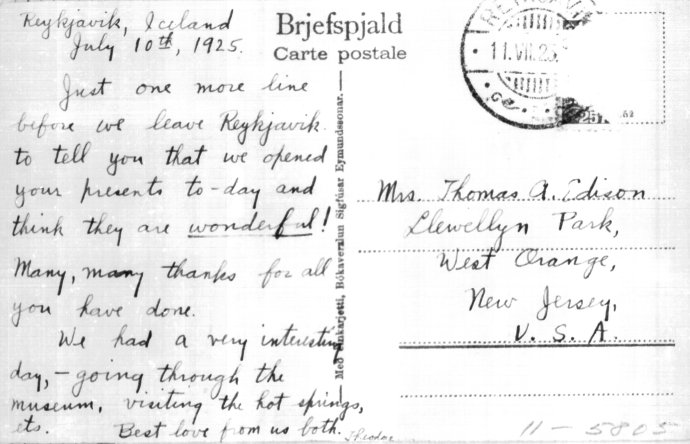 Reykjavik, Iceland
July 10th, 1925.
Just one more line
before we leave Reykjavik
to tell you that we opened
your presents to-day and
think they are wonderful!
Many, many thanks for all
you have done.
We had a very interesting
day, - going through the
museum, visiting the hot springs,
etc. Best love from us both.
Theodore
Brjefspjald
Carte postale
11.VII.25
Með einkarjetti, Bókaverzlun Sigfúsar Eymundssonar.
Mrs. Thomas A. Edison
Llewellyn Park,
West Orange,
New Jersey,
U. S. A.
11-5805